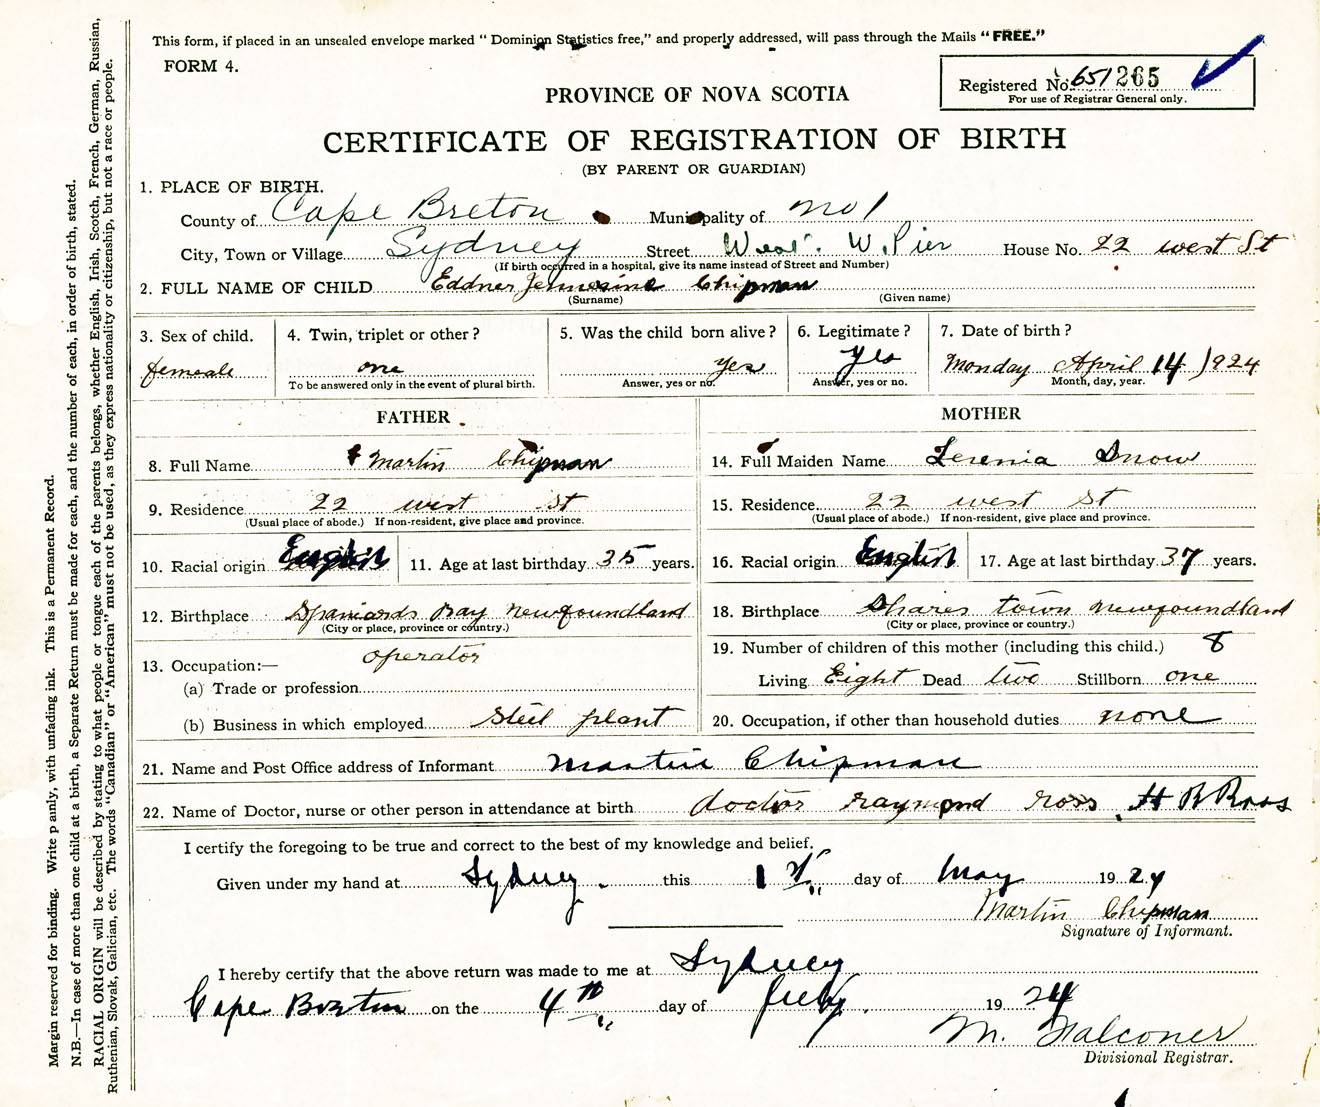 This form, if placed in an unsealed envelope marked "Dominion Statistics free," and properly addressed, will pass through the Mails "FREE."
FORM 4.
Registered No. 651265
For use of Registrar General only.
PROVINCE OF NOVA SCOTIA
CERTIFICATE OF REGISTRATION OF BIRTH
(BY PARENT OR GUARDIAN)
1. PLACE OF BIRTH.
County of Cape Breton Municipality of No 1
City, Town or Village Sydney Street West. W. Pier House No. 22 west St
(If birth occurred in a hospital, give its name instead of Street and Number)
2. FULL NAME OF CHILD Eddner Chipman
(Surname) (Given name)
3. Sex of child. 4. Twin, triplet or other? 5. Was the child born alive? 6. Legitimate? 7. Date of birth?
female one yes Yes Monday April 14 1924
To be answered only in the event of plural birth. Answer, yes or no. Answer, yes or no. Month, day, year.
FATHER MOTHER
8. Full Name Martin Chipman 14. Full Maiden Name Snow
9. Residence 22 west St 15. Residence 22 west St
(Usual place of abode.) If non-resident, give place and province. (Usual place of abode.) If non-resident, give place and province.
10. Racial origin English 11. Age at last birthday 35 years. 16. Racial origin English 17. Age at last birthday 37 years.
12. Birthplace Spaniards Bay Newfoundland 18. Birthplace Shares town Newfoundland
(City or place, province or country.) (City or place, province or country.)
13. Occupation:— operator 19. Number of children of this mother (including this child.) 8
(a) Trade or profession Living Eight Dead two Stillborn one
(b) Business in which employed Steel plant 20. Occupation, if other than household duties none
21. Name and Post Office address of Informant Martin Chipman
22. Name of Doctor, nurse or other person in attendance at birth doctor raymond ross H R Ross
I certify the foregoing to be true and correct to the best of my knowledge and belief.
Given under my hand at Sydney. this 1st day of May 1924
Martin Chipman
Signature of Informant.
I hereby certify that the above return was made to me at Sydney
Cape Breton on the 4th day of July. 1924
M. Falconer
Divisional Registrar.
Margin reserved for binding. Write p anly, with unfading ink. This is a Permanent Record.
N.B.—In case of more than one child at a birth, a Separate Return must be made for each, and the number of each, in order of birth, stated.
RACIAL ORIGIN will be described by stating to what people or tongue each of the parents belongs, whether English, Irish, Scotch, French, German, Russian,
Ruthenian, Slovak, Galician, etc. The words "Canadian" or "American" must not be used, as they express nationality or citizenship, but not a race or people.